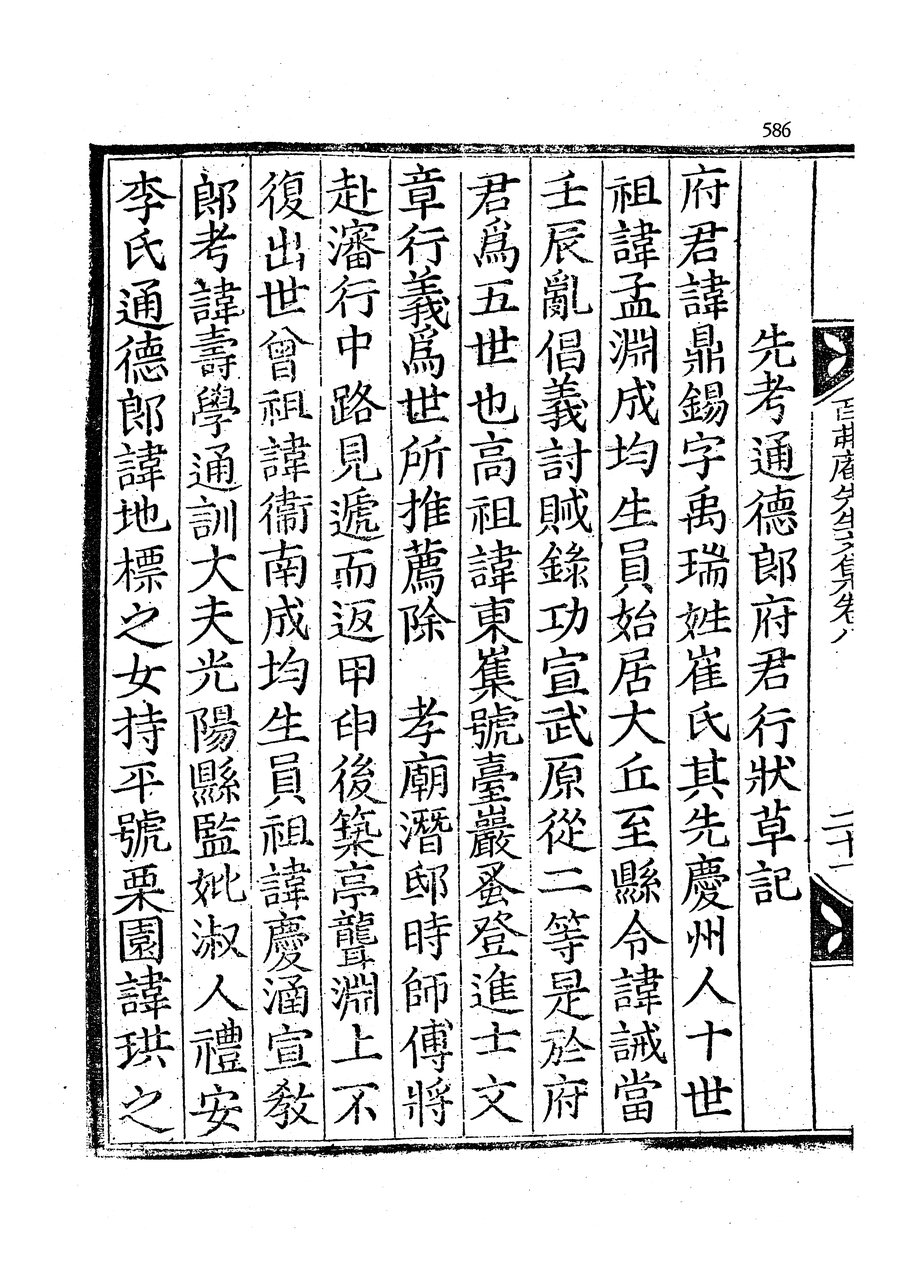 586
百弗庵先生文集卷八 二十一
先考通德郎府君行狀草記
府君諱鼎錫字禹瑞姓崔氏其先慶州人十世
祖諱孟淵成均生員始居大丘至縣令諱誡當
壬辰亂倡義討賊錄功宣武原從二等是於府
君爲五世也高祖諱東㠍號臺巖蚤登進士文
章行義爲世所推薦除　孝廟潛邸時師傅將
赴瀋行中路見遞而返甲申後築亭聾淵上不
復出世曾祖諱衛南成均生員祖諱慶涵宣敎
郎考諱壽學通訓大夫光陽縣監妣淑人禮安
李氏通德郎諱地標之女持平號栗園諱珙之